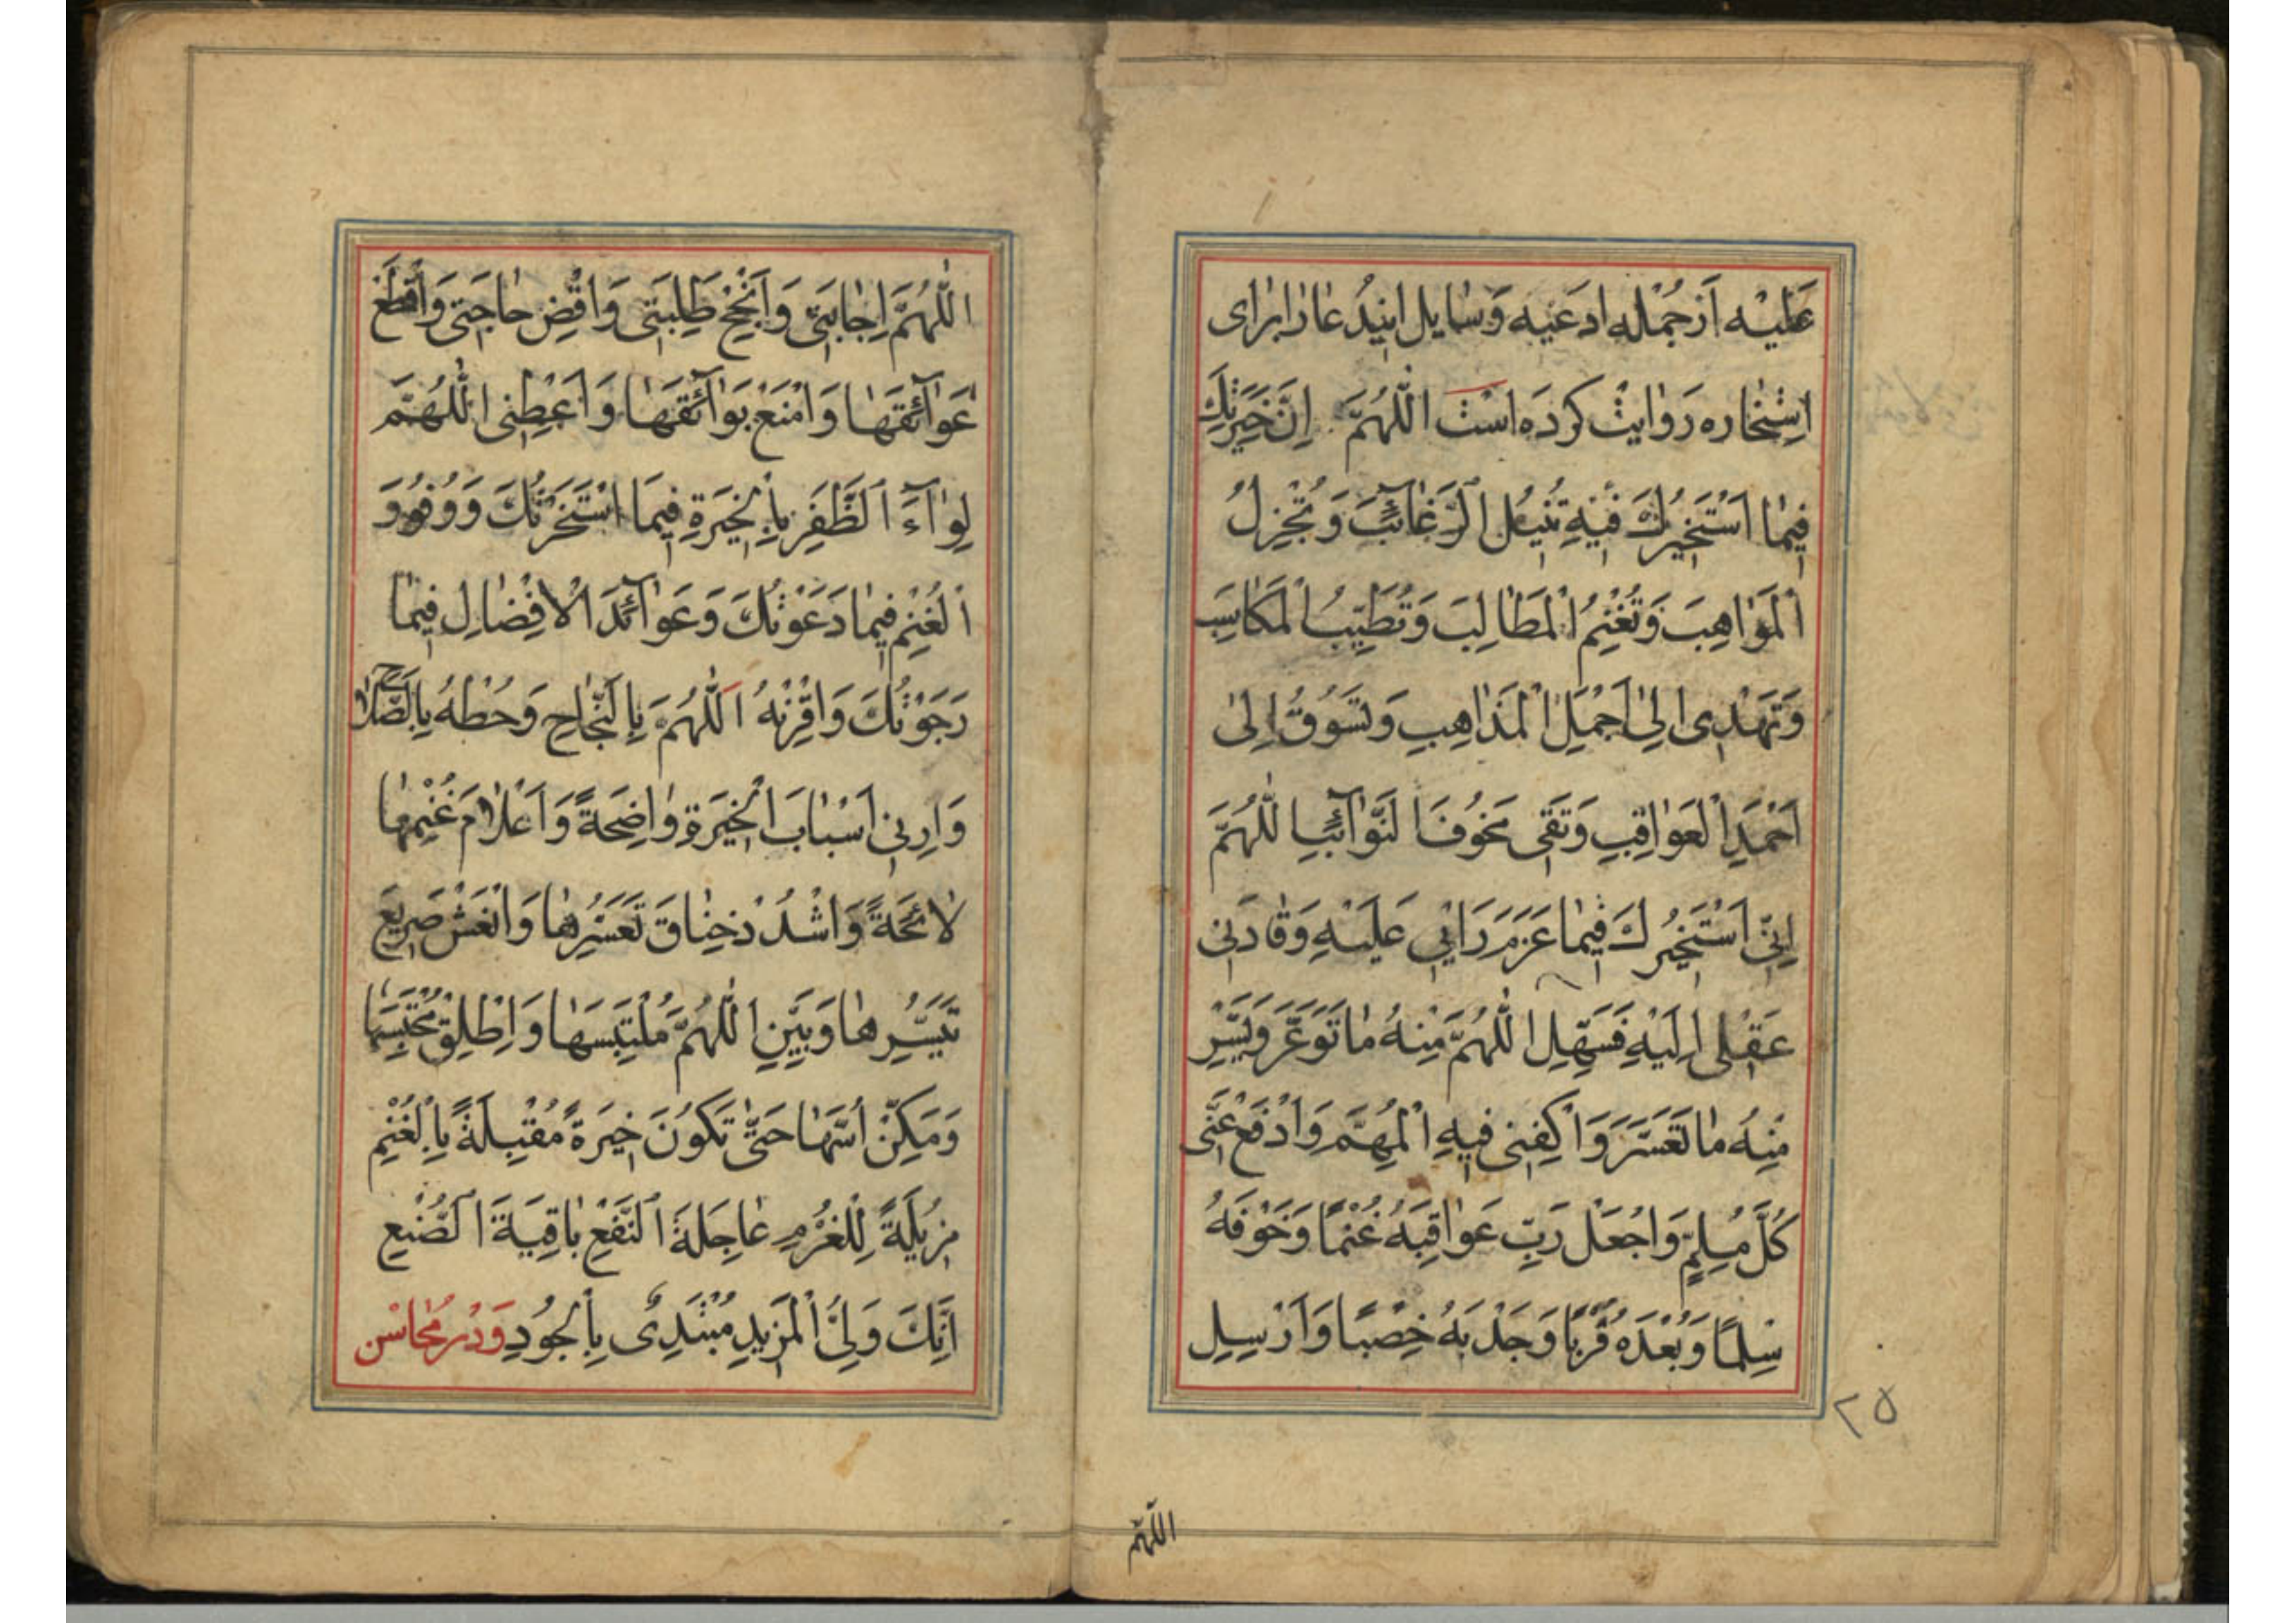 عَلَيْه اَزجُمْله ادعَيه وَسٰايل اينِدُعا رابراى
اِسْتِخٰاره رَوايتْ كردَه اسْت اَللّٰهُمَّ اِنَّ خِيَرَتَكَ
فِيمٰا اَسْتَخيرُكَ فيهِ تُنيلُ الرَّغٰآئِبَ وَتُجْزِلُ
الْمَوٰاهِبَ وَتُغْنِمُ الْمَطٰالِبَ وَتُطَيِّبُ الْمَكٰاسِبَ
وَتَهْدى اِلىٰ اَجْمَلِ الْمَذٰاهِبِ وَتَسُوقُ اِلىٰ
اَحْمَدِ الْعَوٰاقِبِ وَتَقى مَخُوفَ النَّوٰآئِبِ اَللّٰهُمَّ
اِنّى اَسْتَخيرُكَ فيمٰا عَزَمَ رَاْيى عَلَيْهِ وَقٰادَنى
عَقْلى اِلَيْهِ فَسَهِّلِ اللّٰهُمَّ مِنْهُ مٰا تَوَعَّرَ وَيَسِّرْ
مِنْهُ مٰا تَعَسَّرَ وَاكْفِنى فيهِ الْمُهِمَّ وَادْفَعْ عَنّى
كُلَّ مُلِمٍّ وَاجْعَلْ رَبِّ عَوٰاقِبَهُ غُنْمًا وَخَوْفَهُ
سِلْمًا وَبُعْدَهُ قُرْبًا وَجَدْبَهُ خِصْبًا وَاَرْسِلِ
٢٥
اللّٰهُمَّ
اللّٰهُمَّ اِجٰابَتى وَاَنْجِحْ طَلِبَتى وَاقْضِ حٰاجَتى وَاقْطَعْ
عَوٰآئِقَهٰا وَامْنَعْ بَوٰآئِقَهٰا وَاَعْطِنى اللّٰهُمَّ
لِوٰآءَ الظَّفَرِ بِالْخِيَرَةِ فيمَا اسْتَخَرْتُكَ وَوُفُورَ
الْغُنْمِ فيمٰا دَعَوْتُكَ وَعَوٰآئِدَ الْاِفْضٰالِ فيمٰا
رَجَوْتُكَ وَاقْرِنْهُ اَللّٰهُمَّ بِالنَّجٰاحِ وَحُطْهُ بِالصَّلاٰح
وَاَرِنى اَسْبٰابَ الْخِيَرَةِ وٰاضِحَةً وَاَعْلاٰمَ غُنْمِهٰا
لاٰئِحَةً وَاشْدُدْ خِنٰاقَ تَعَسُّرِهٰا وَانْعَشْ صَريعَ
تَيَسُّرِهٰا وَبَيِّنِ اللّٰهُمَّ مُلْتَبِسَهٰا وَاَطْلِقْ مُحْتَبَسَهٰا
وَمَكِّنْ اُسَّهٰا حَتّىٰ تَكُونَ خِيَرَةً مُقْبِلَةً بِالْغُنْمِ
مُزيلَةً لِلْغُرْمِ عٰاجِلَةَ النَّفْعِ بٰاقِيَةَ الصُّنْعِ
اِنَّكَ وَلِىُّ الْمَزيدِ مُبْتَدِىءٌ بِالْجُودِ وَدَرْ مَحٰاسْن